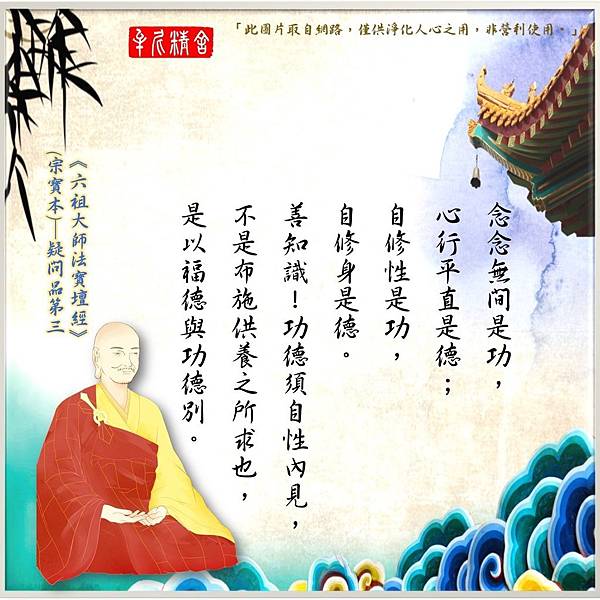 「此圖片取自網路，僅供淨化人心之用，非營利使用。」
念念無間是功，
心行平直是德；
自修性是功，
自修身是德。
善知識！功德須自性內見，
不是布施供養之所求也，
是以福德與功德別。
《六祖大師法寶壇經》
(宗寶本)—疑問品第三